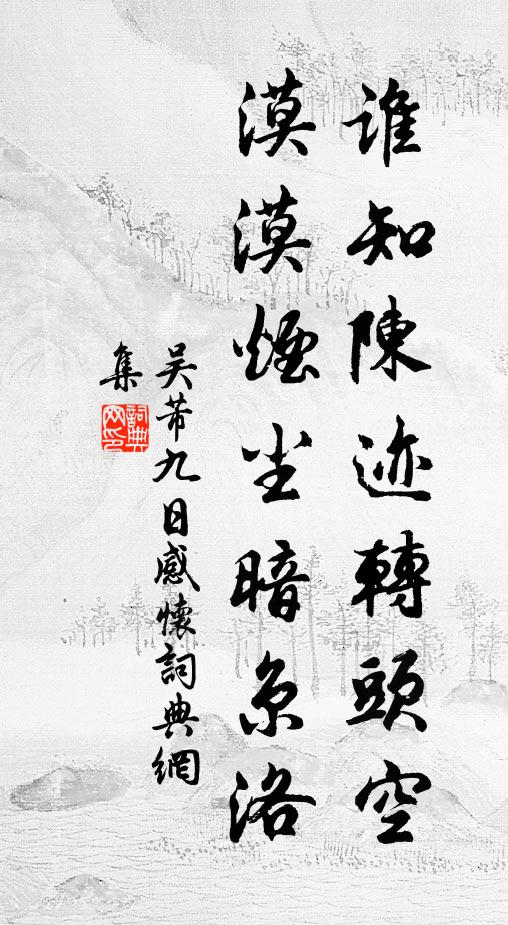 誰知陳迹轉頭空
漠漠煙尘暗京洛
吴芾九日感懷詞典網
集
詞典
网印